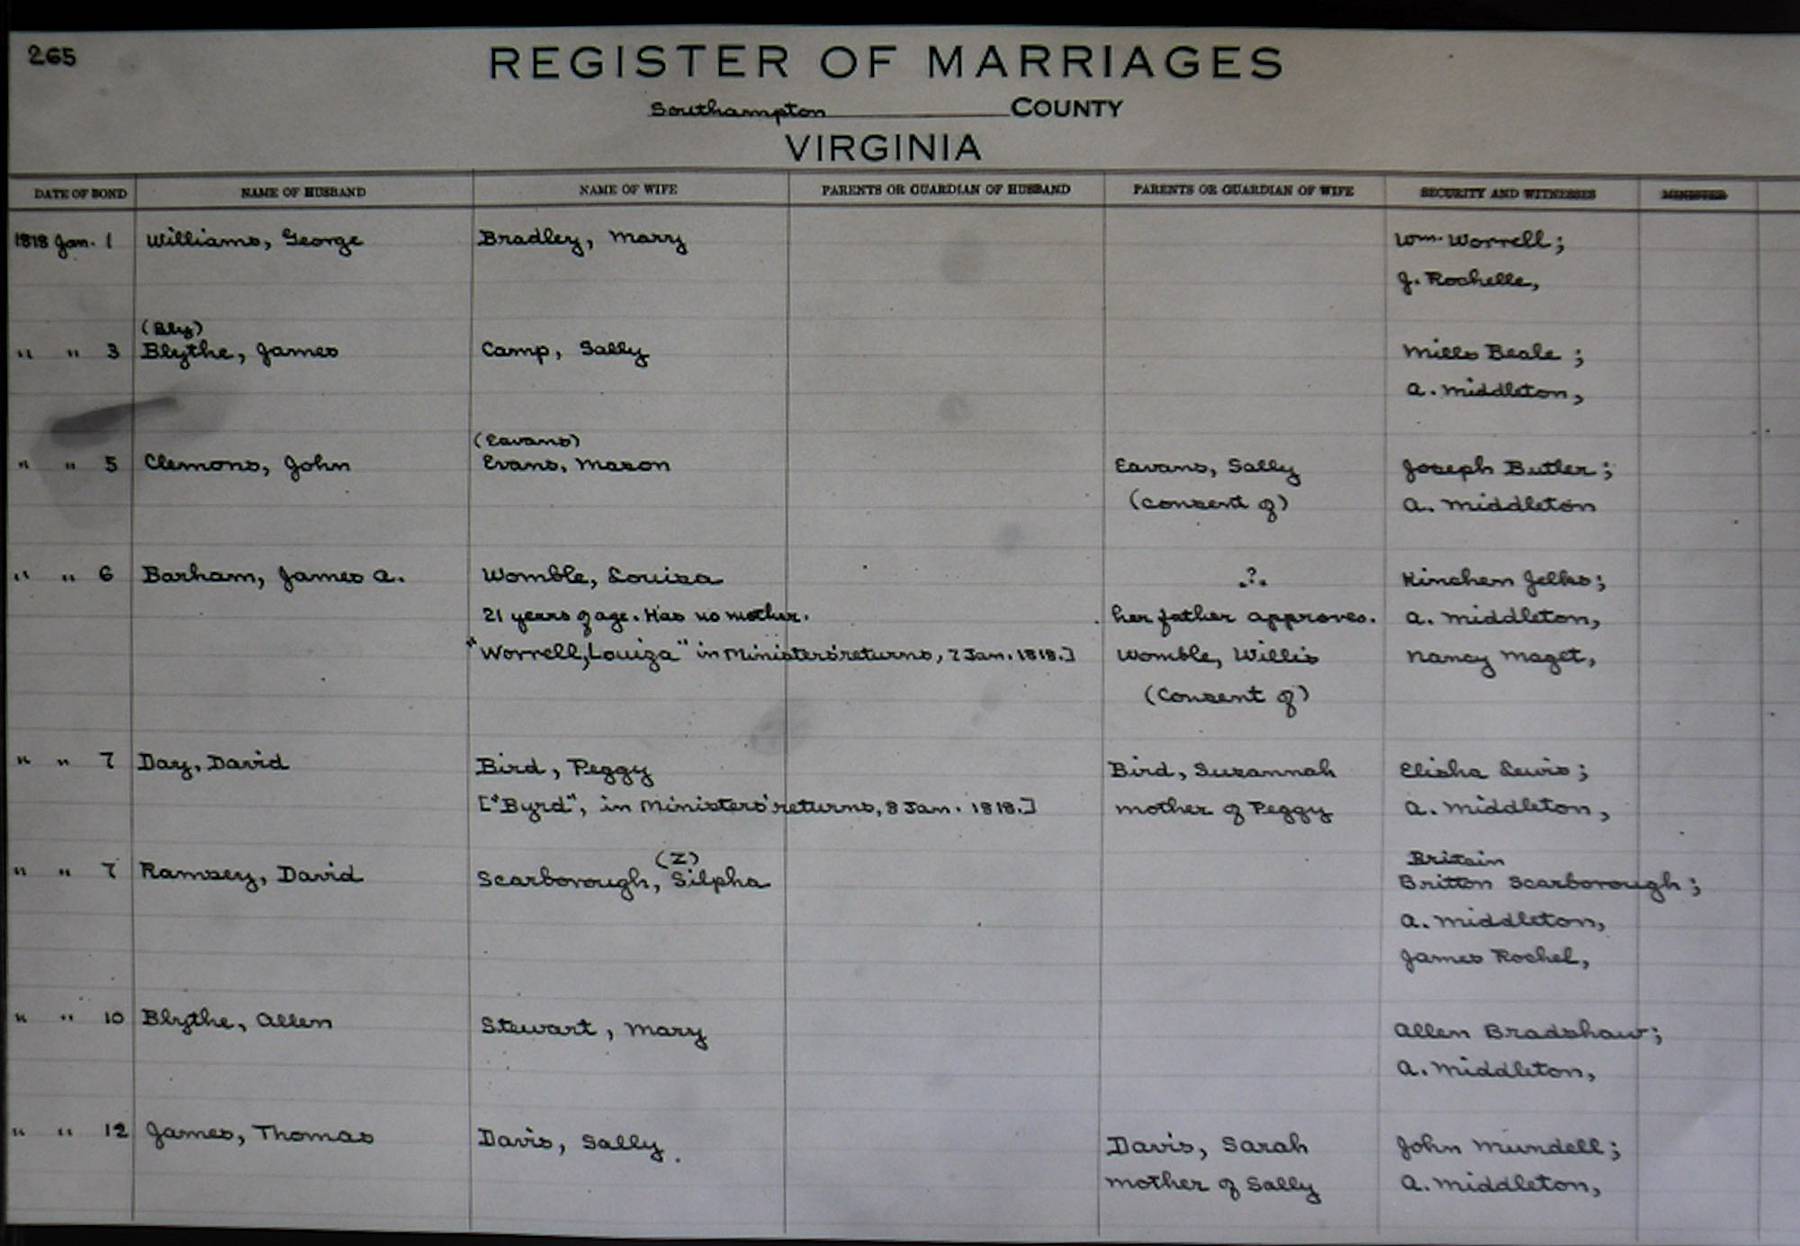 265
REGISTER OF MARRIAGES
Southampton COUNTY
VIRGINIA
DATE OF BOND NAME OF HUSBAND NAME OF WIFE PARENTS OR GUARDIAN OF HUSBAND PARENTS OR GUARDIAN OF WIFE SECURITY AND WITNESSES MINISTER
1818 Jan. 1 Williams, George Bradley, Mary Wm. Worrell;
J. Rochelle,
(Bly)
" " 3 Blythe, James Camp, Sally Mills Beale;
A. Middleton,
(Eavans)
" " 5 Clemons, John Evans, Mason Eavans, Sally Joseph Butler;
(Consent of) A. Middleton
" " 6 Barham, James A. Womble, Louiza .?. Kinchen Jelks;
21 years of age. Has no mother. her father approves. A. Middleton,
"Worrell, Louiza" in Ministers' returns, 7 Jan. 1818.] Womble, Willis Nancy Maget,
(Consent of)
" " 7 Day, David Bird, Peggy Bird, Suzannah Elisha Lewis;
["Byrd", in Ministers' returns, 8 Jan. 1818.] mother of Peggy A. Middleton,
(Z) Britain
" " 7 Ramsey, David Scarborough, Silpha Britton Scarborough;
A. Middleton,
James Rochel,
" " 10 Blythe, Allen Stewart, Mary Allen Bradshaw;
A. Middleton,
" " 12 James, Thomas Davis, Sally. Davis, Sarah John Mundell;
mother of Sally A. Middleton,